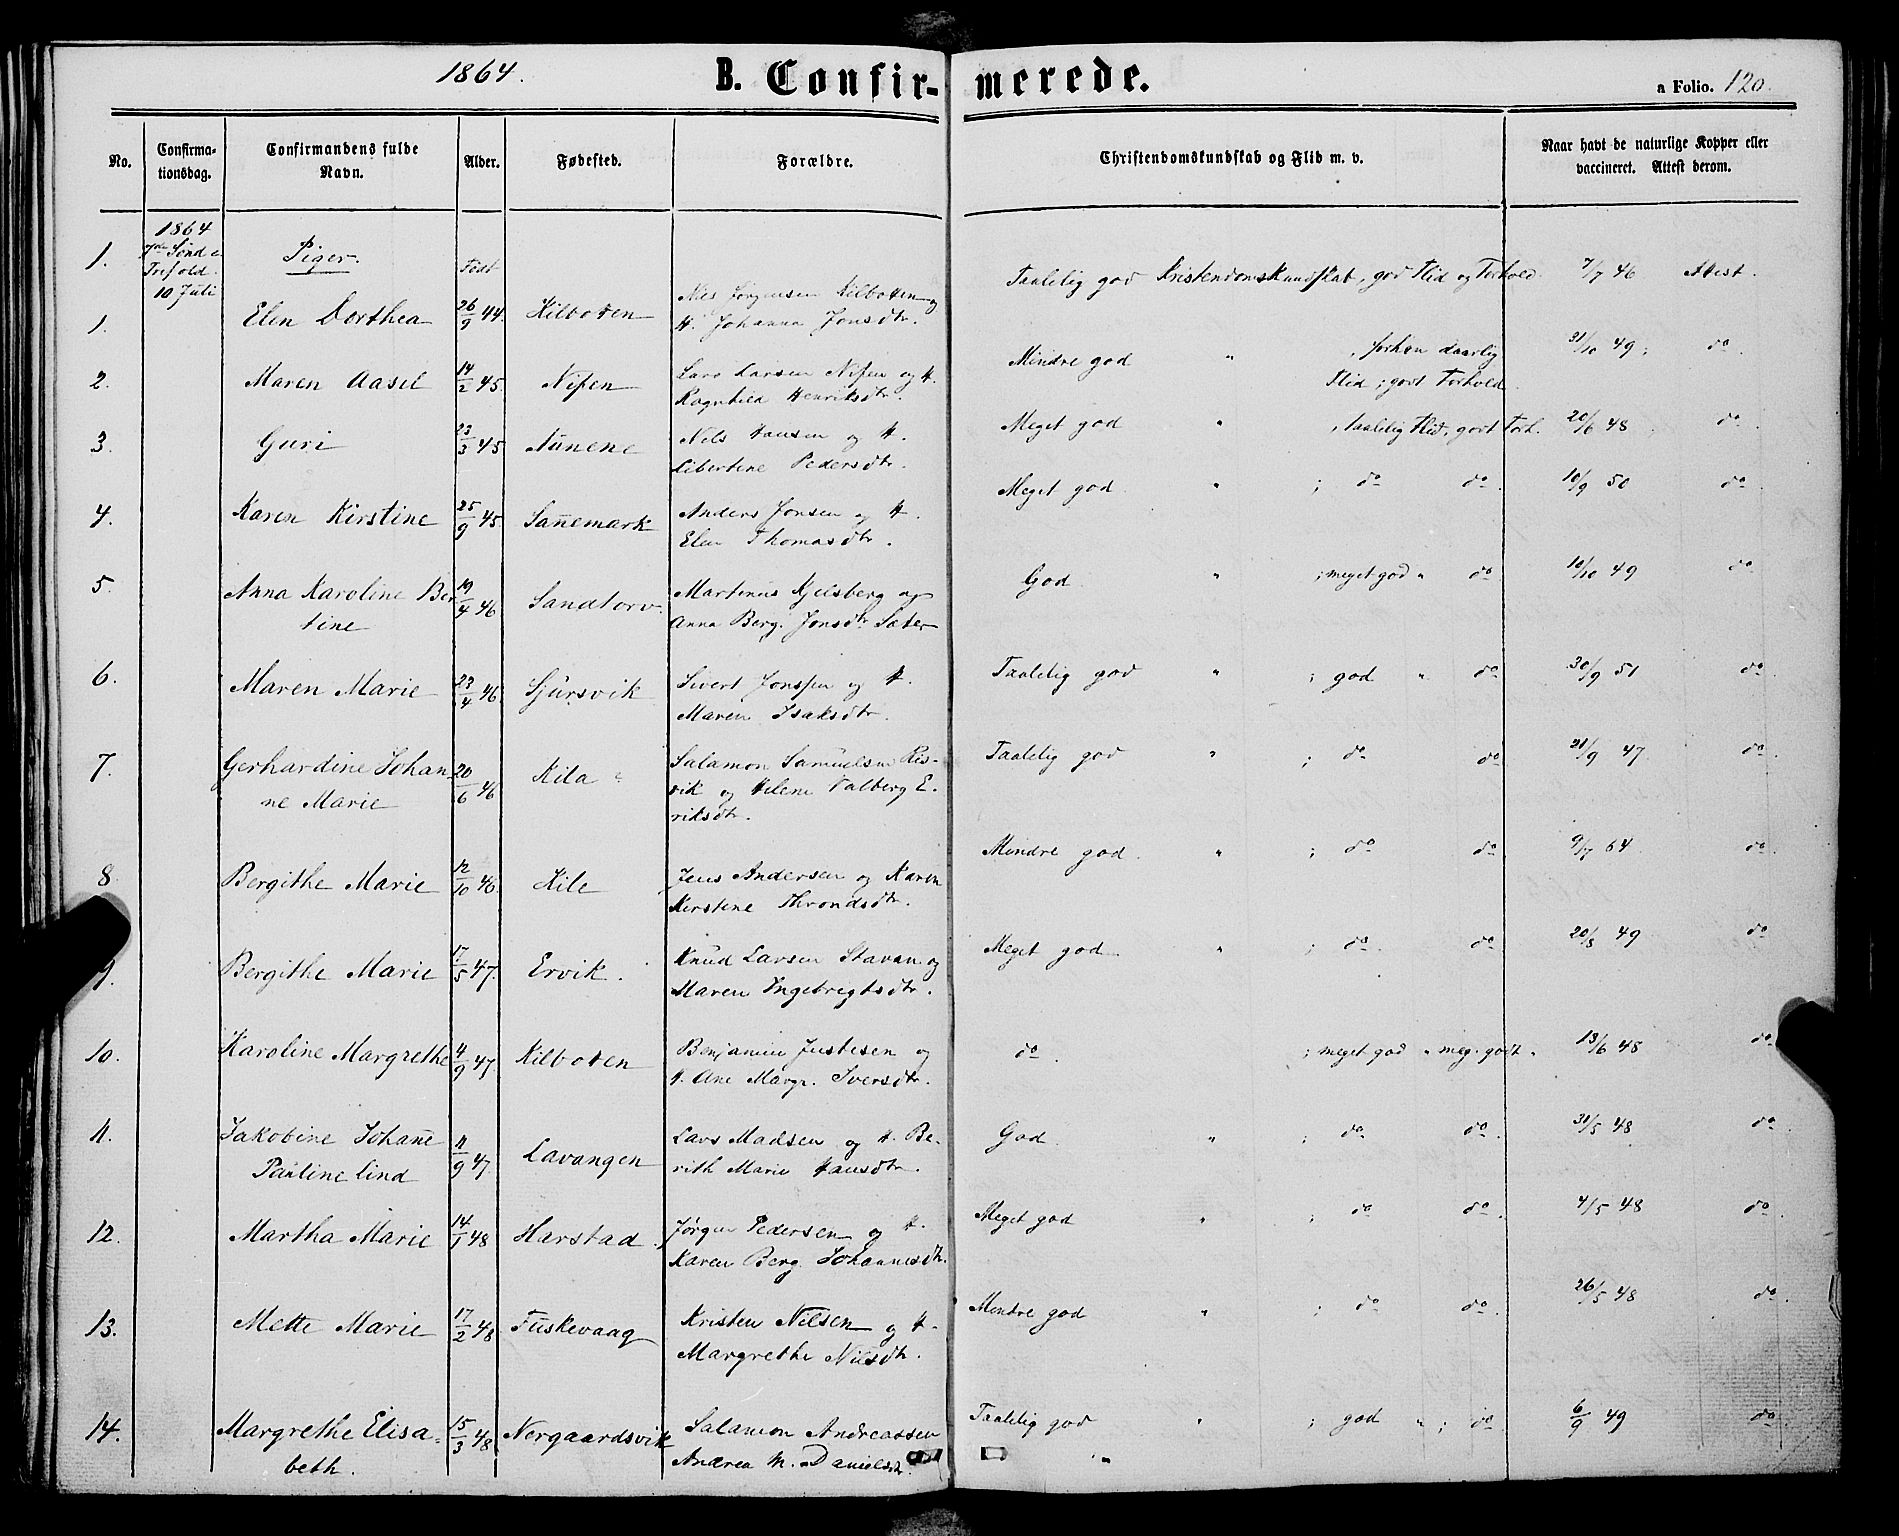 1864. B. Confir- merede. a Folio. 120.
No. Confirma- tionsdag. Confirmandens fulde Navn. Alder. Fødested. Forældre. Christendomskundskab og Flid m. v. Naar havt de naturlige Kopper eller vaccineret. Attest derom.
1864
1. 7de Sönd e Piger.
Trefold. Födt
10 Juli
Taalelig god Kristendomskundskab, god Flid og Forhold. 7/7 46 Attest.
1. Elen Dorthea 26/9 44. Kilboten Nils Jørgensen Kilboten og
H. Johanna Jonsdtr.
Mindre god " , forhen daarlig 31/10 49; do.
Flid; godt Forhold.
2. Maren Aasel 14/2 45. Nipen Lars Larsen Nipen og H.
Ragnhild Henriksdtr.
Meget god " , taalelig Flid, godt Forh. 20/6 48 do.
3. Guri 23/3 45 Aunene Nils Hansen og H.
Libertine Pedersdtr.
Meget god " ; do do. 10/9 50 do.
4. Karen Kirstine 25/9 45 Sannemark Anders Jonsen og H.
Elen Thomasdtr.
5. Anna Karoline Ber 19/4 46 Sandtorv Martinus Gjelsberg og
tine Anna Berg. Jonsdtr Sæter
God " ; meget god " do. 10/10 49 do.
6. Maren Marie 23/4 46 Sjursvik Sivert Jonssen og H.
Maren Isaksdtr.
Taalelig god " ; god " do. 30/9 51 do.
7. Gerhardine Johan 20/6 46 Kila Salamon Samuelsen Ris-
ne Marie vik og Helene Valberg E.
riksdtr.
Taalelig god " ; do do 21/9 47 do.
8. Bergithe Marie 12/10 46 Kile Jens Andersen og Karen
Kerstine Throndsdtr.
Mindre god. " ; do do 9/7 64 do.
9. Bergithe Marie 17/5 47. Ervik. Knud Larsen Stavan og
Maren Ingebregtsdtr.
Meget god " ; do. do. 20/8 49 do.
10. Karoline Margrethe 4/9 47 Kilboten Benjamin Justesen og
H. Ane Margr. Iversdtr.
do. ; meget god " meg. godt " 13/6 48 do.
11. Jakobine Johañe 11/9 47 Lavangen Lars Madsen og H. Be-
Pauline Lind rith Marie Hansdtr.
God. " ; do do. 31/5 48 do.
12. Martha Marie 14/1 48 Harstad. Jørgen Pedersen og H.
Karen Berg. Johannesdtr.
Meget god " ; do do. 4/5 48 do.
13. Mette Marie 17/2 48 Fuskevaag Kristen Nilsen og H.
Margrethe Nilsdtr.
Mindre god " ; do do. 26/5 48 do.
14. Margrethe Elisa- 15/3 48 Nergaardsvik Salamon Andreassen
beth. Andrea M. Danielsdtr.
Taalelig god " ; god " ; do. 6/9 49 do.
"